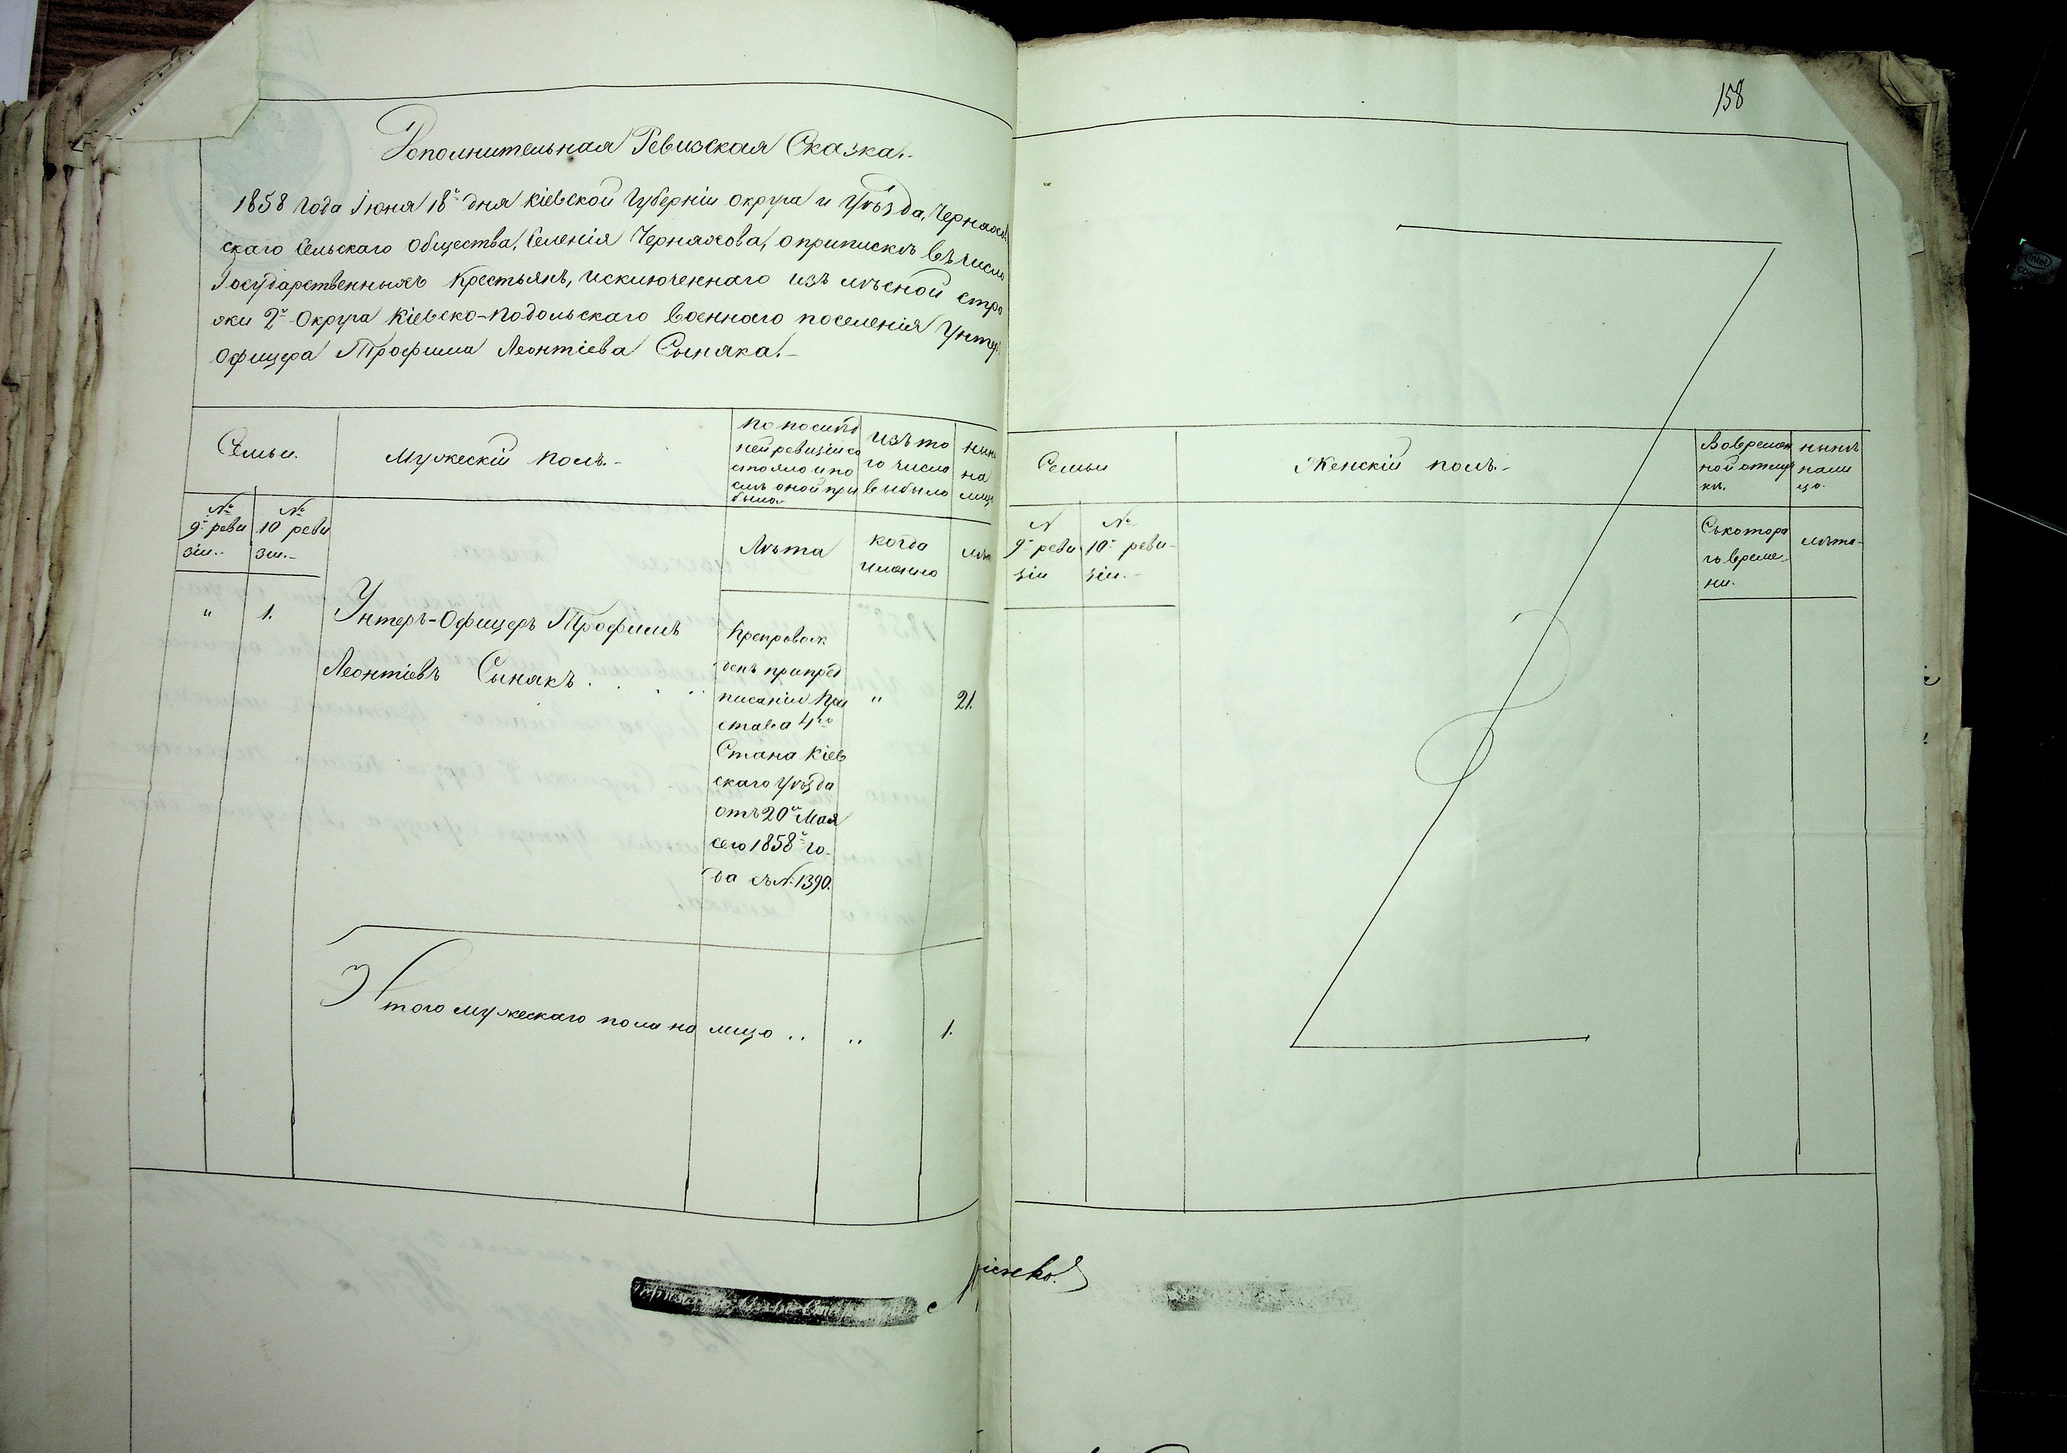 158
Дополнительная Ревизская Сказка.
1858 года Іюня 18го дня Кіевской Губерніи округа и Уѣзда, Черняхов
скаго Сельскаго Общества, Селенія Черняхова, о припискѣ въ число
Государственныхъ Крестьянъ, исключеннаго изъ лѣсной стро
жи 2го Округа Кіевско-Подольскаго Военнаго поселенія Унтер
Офицера Трофима Леонтіева Сыняка.
Семьи.
Мужескій полъ.
По послѣд
ней ревизіи со
стояло и по
слѣ оной при
было
изъ то
го числа
выбыло
нынѣ
на
лицо
№
9й реви
зіи.
№
10 реви
зіи.
Лѣта
когда
именно
лѣта
" 1. Унтеръ-Офицеръ Трофимъ
Леонтіевъ Сынякъ . . . " 21.
Препровож
денъ при пред
писаніи При
става 4го
Стана Кіев
скаго Уѣзда
отъ 20го Мая
сего 1858го го-
да съ №. 1390.
Итого мужескаго пола на лицо .. " 1.
Семьи
Женскій полъ.
Во времен
ной отлуч
кѣ.
нынѣ
на ли
цо.
№
9й реви
зіи
№
10й реви-
зіи.
Съ котора
го време-
ни.
лѣта